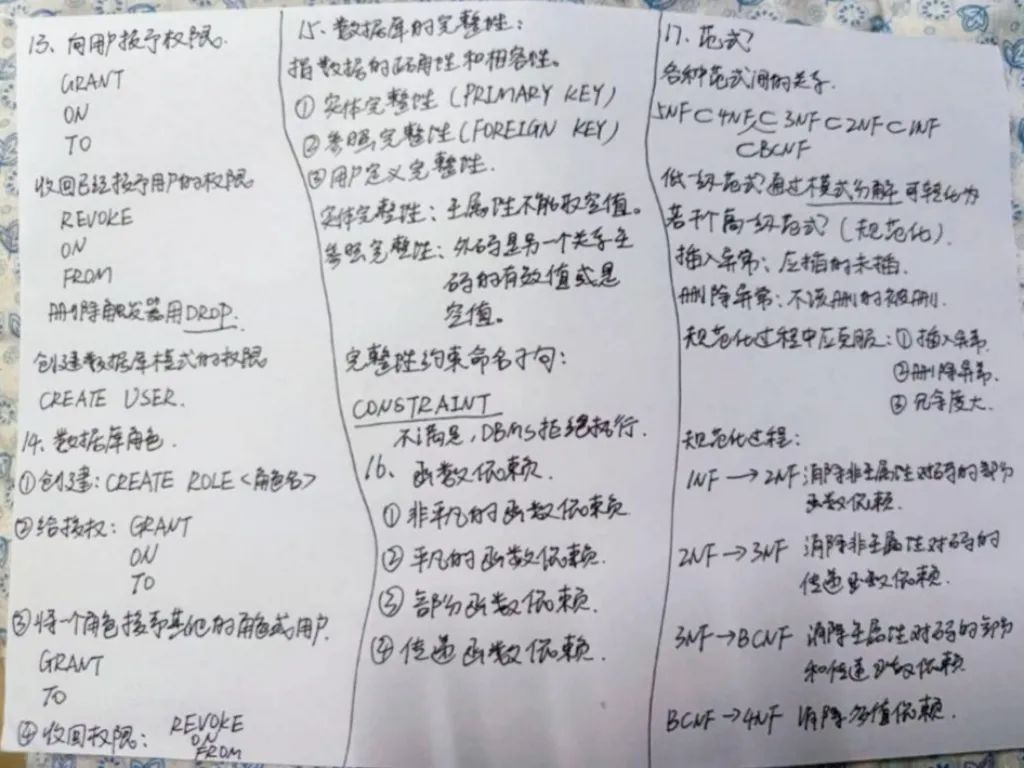 13、向用户授予权限.
GRANT
ON
TO
收回已经授予用户的权限
REVOKE
ON
FROM
删除触发器用DROP.
创建数据库模式的权限
CREATE USER.
14、数据库角色.
①创建: CREATE ROLE <角色名>
②给授权: GRANT
ON
TO
③将一个角色授予其他的角色或用户
GRANT
TO
④收回权限: REVOKE
ON
FROM
15、数据库的完整性:
指数据的正确性和相容性。
①实体完整性 (PRIMARY KEY)
②参照完整性 (FOREIGN KEY)
③用户定义完整性.
实体完整性: 主属性不能取空值。
参照完整性: 外码是另一个关系主
码的有效值或是
空值。
完整性约束命名子句:
CONSTRAINT
不满足, DBMS拒绝执行.
16、函数依赖.
①非平凡的函数依赖
②平凡的函数依赖.
③部分函数依赖.
④传递函数依赖.
17、范式?
各种范式间的关系.
5NF⊂4NF⊂3NF⊂2NF⊂1NF
⊂BCNF
低一级范式通过模式分解可转化为
若干个高一级范式?(规范化).
插入异常: 应插的未插.
删除异常: 不该删的被删.
规范化过程中应克服: ①插入异常.
②删除异常.
③冗余度大.
规范化过程:
1NF→2NF 消除非主属性对码的部分
函数依赖.
2NF→3NF 消除非主属性对码的
传递函数依赖.
3NF→BCNF 消除主属性对码的部分
和传递函数依赖
BCNF→4NF 消除多值依赖.